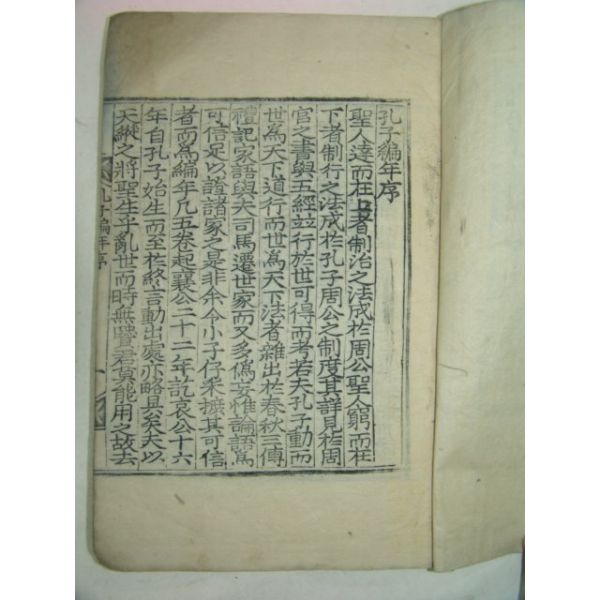 孔子編年序
聖人達而在上者制治之法成於周公聖人窮而在
下者制行之法成於孔子周公之制度其詳見於周
官之書與五經並行於世可得而考若夫孔子動而
世爲天下道行而世爲天下法者雜出於春秋三傳
禮記家語與夫司馬遷世家而又多僞妄惟論語爲
可信足以證諸家之是非余令小子仔采摭其可信
者而爲編年凡五卷起襄公二十二年訖哀公十六
年自孔子始生而至於終言動出處亦略具矣夫以
天縱之將聖生乎亂世而時無賢君莫能用之故去
孔子編年序